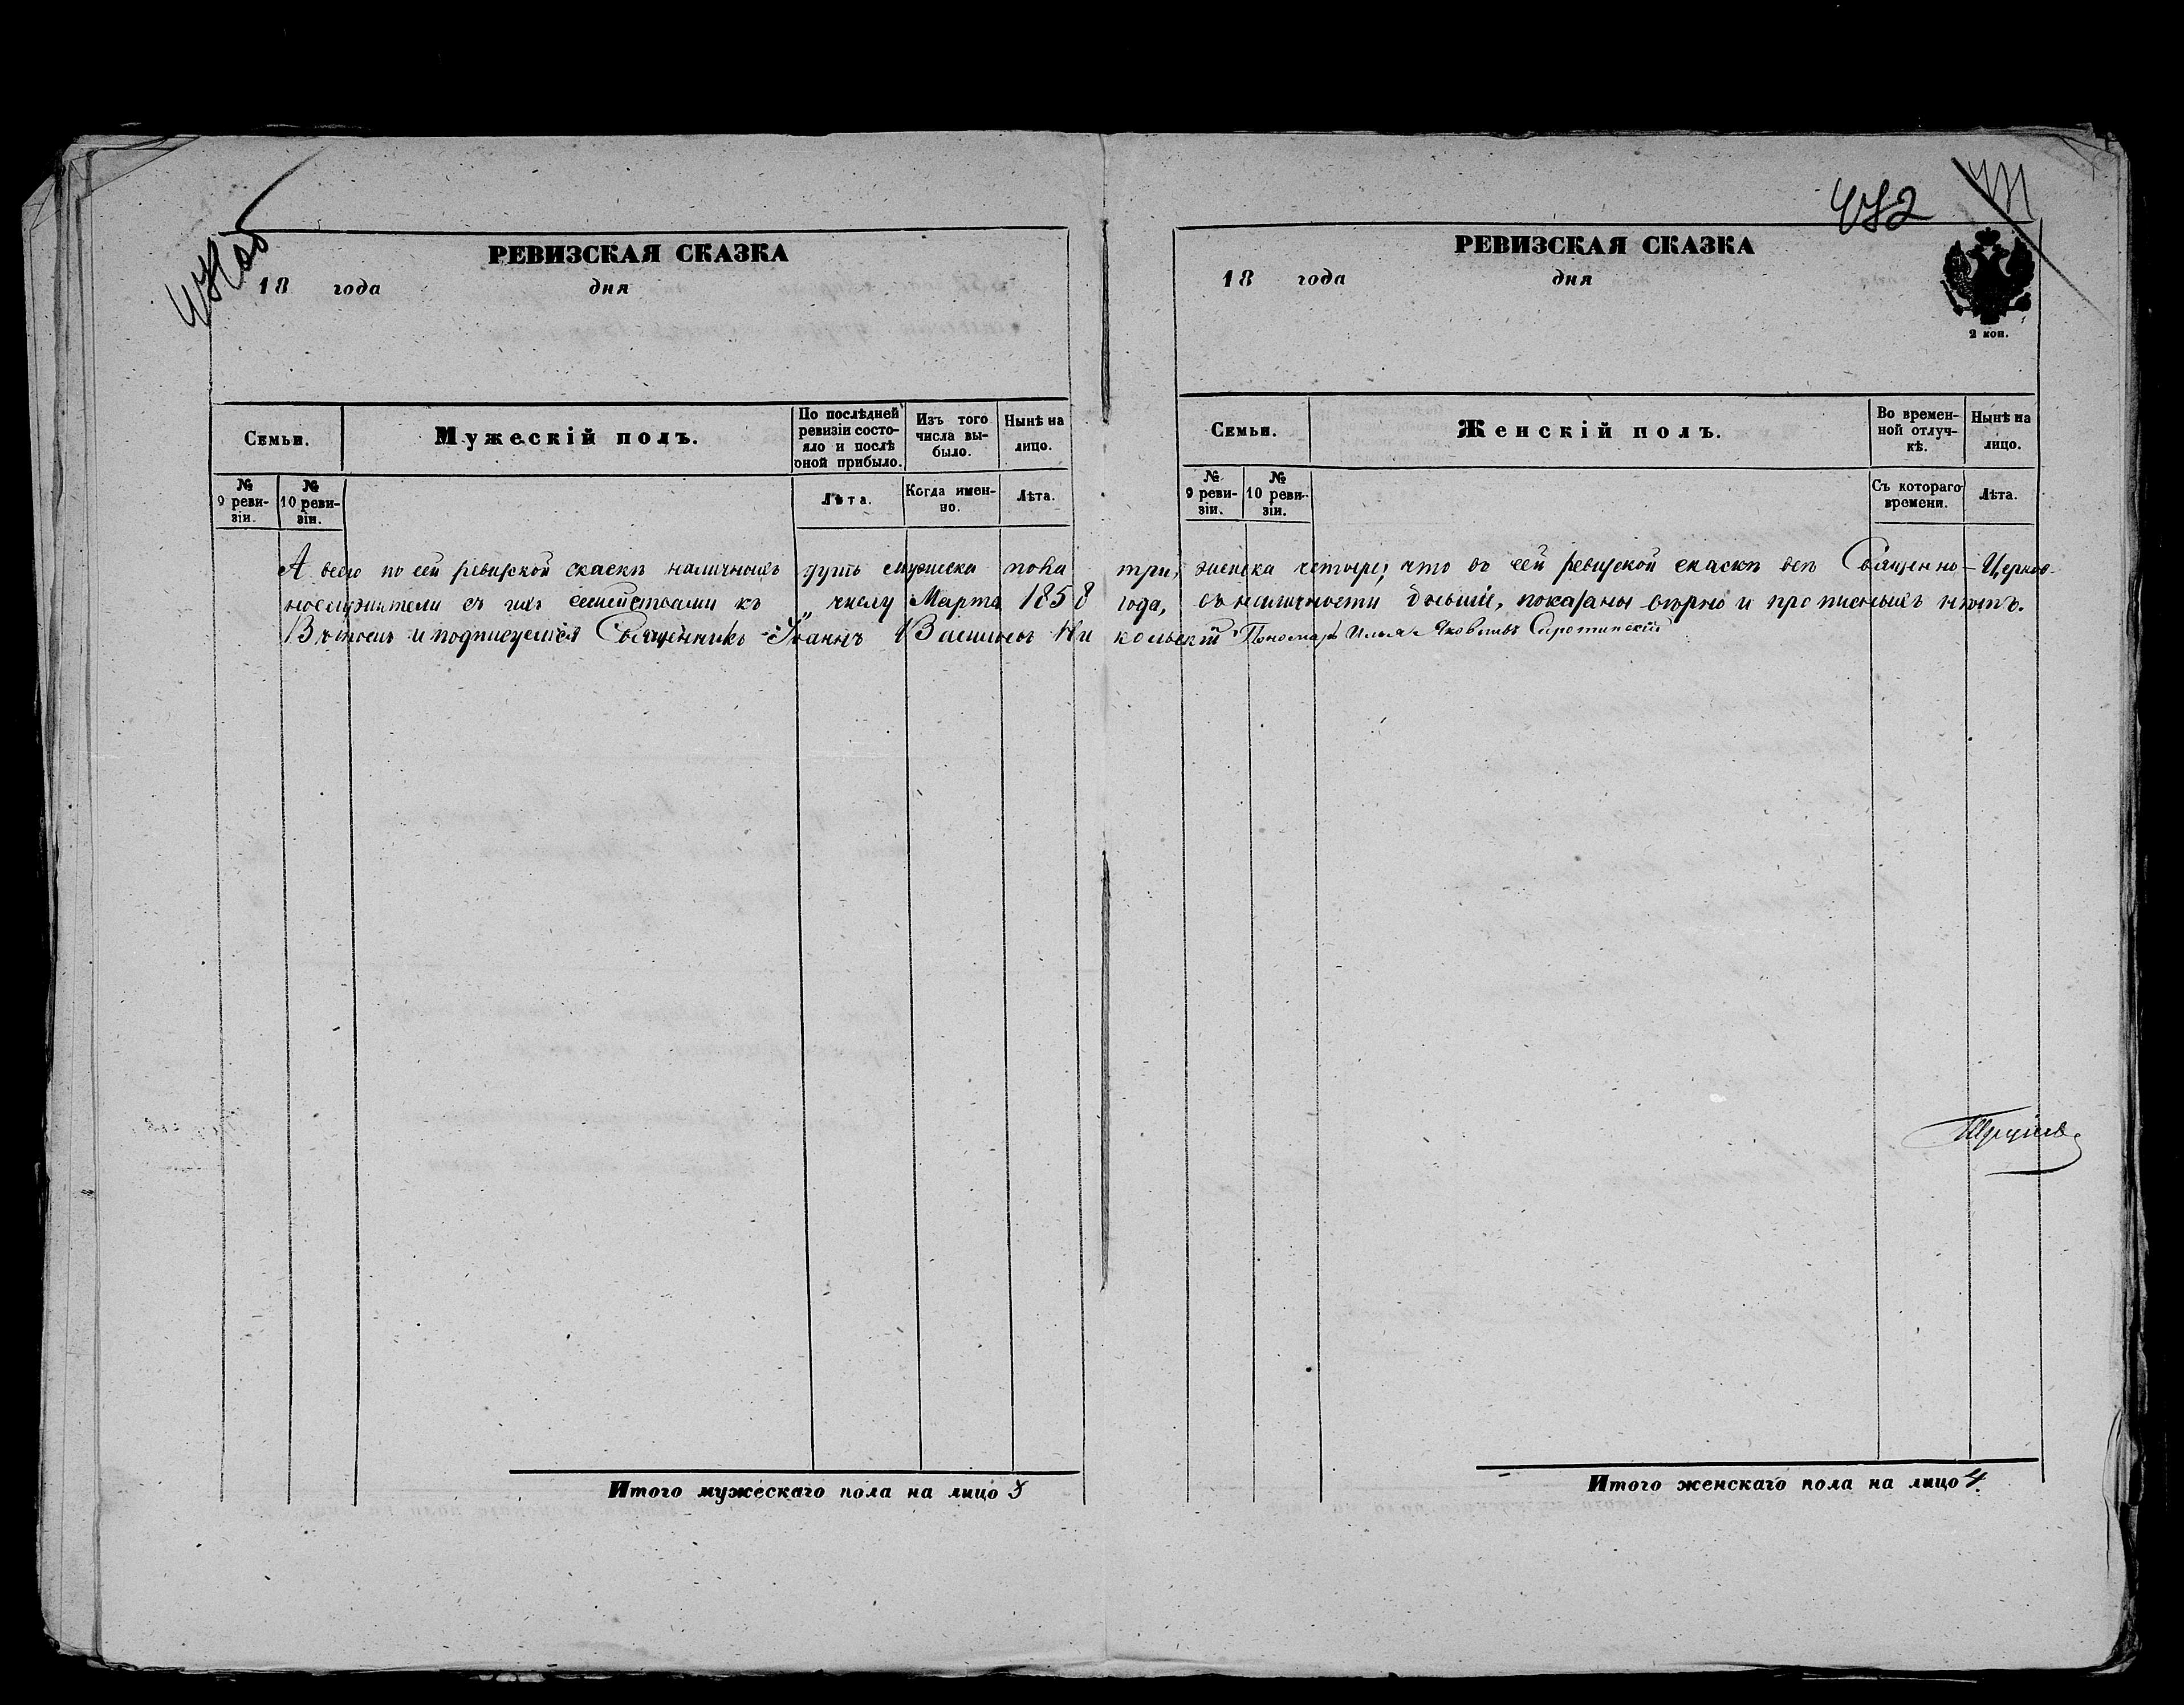 471об
РЕВИЗСКАЯ СКАЗКА
18 года дня
Семьи.
Мужескій полъ.
По послѣдней ревизіи состояло и послѣ оной прибыло.
Изъ того числа выбыло.
Нынѣ на лицо.
№ 9 ревизіи.
№ 10 ревизіи.
Лѣта.
Когда именно.
Лѣта.
472
471
РЕВИЗСКАЯ СКАЗКА
18 года дня
2 коп.
Семьи.
Женскій полъ.
Во временной отлучкѣ.
Нынѣ на лицо.
№ 9 ревизіи.
№ 10 ревизіи.
Съ котораго времени.
Лѣта.
А всего по сей ревизской сказкѣ наличныхъ душъ мужеска пола три, женска четыре; что въ сей ревизской сказкѣ всѣ Священно-Церков-
нослужители съ ихъ семействами къ „ числу Марта 1858 года, въ наличности бывшіе, показаны вѣрно и прописныхъ нѣтъ.
Въ томъ и подписуемся Священникъ Іоаннъ Васильевъ Никольскій Пономарь Илья Яковлевъ Сиротинскій
Итого мужескаго пола на лицо 3
Итого женскаго пола на лицо 4.